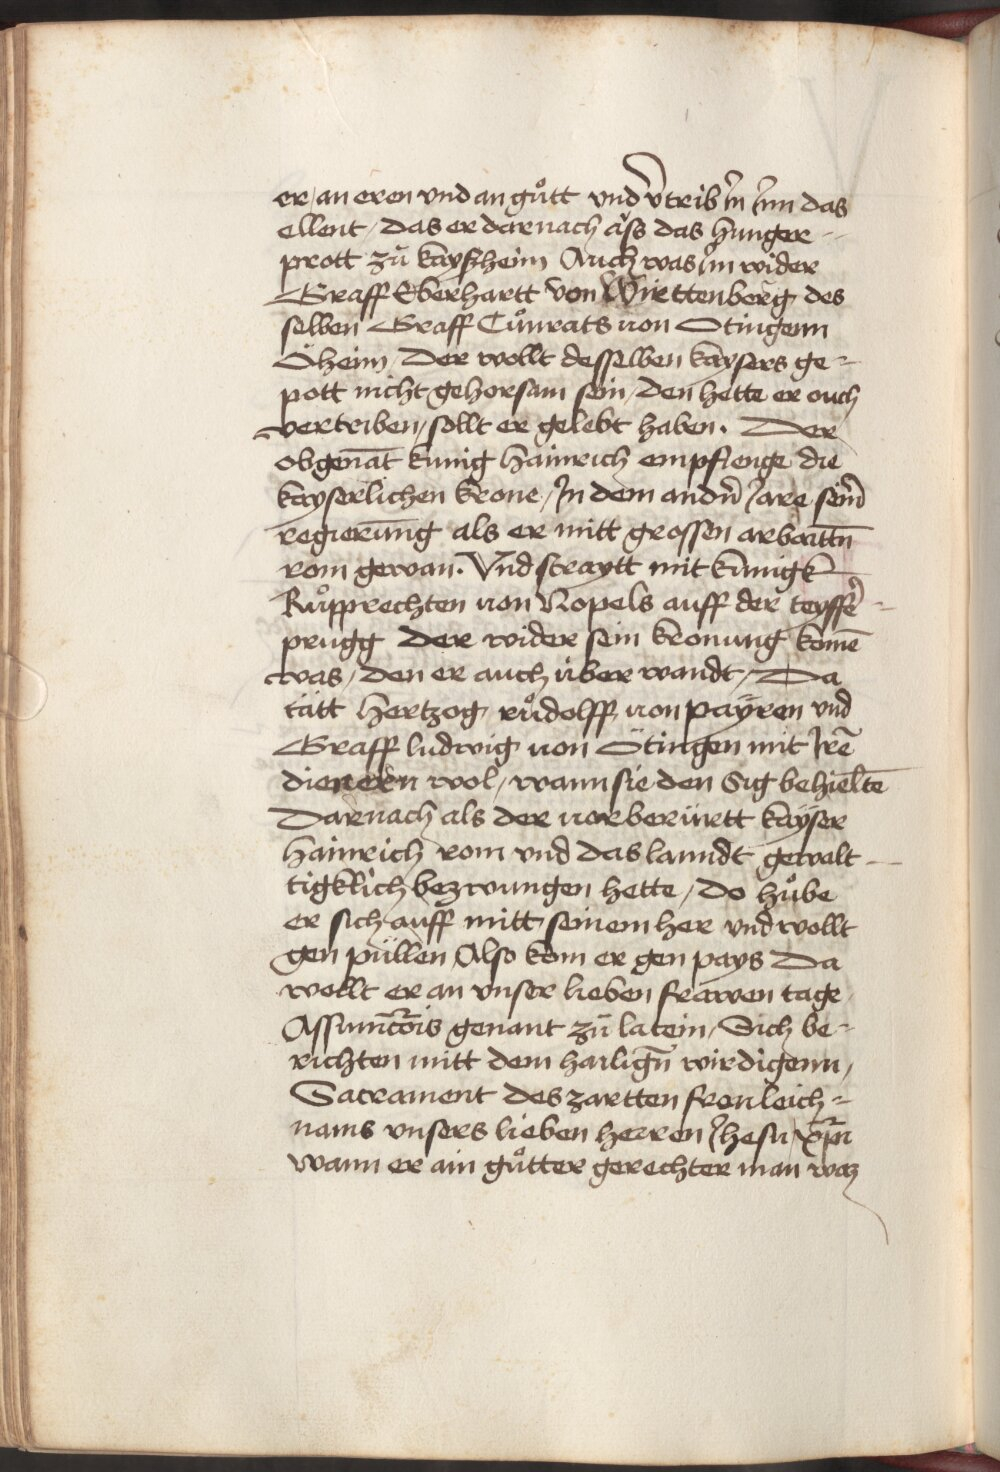 er / an eren vnd an guͦtt vnd v̄trib in Inn das
ellent / das er darnach aͤſs das hunger-
prott zuͦ kayſzheim Auch was im wider
Graff Eberhartt von Wirttenberg des
ſelben Graff Cuͦnrats von Otingenn
Öheim / Der wollt deſſelben kayſers ge-
pott nicht gehorſam ſein / den hette er ouch
vertriben / ſollt er gelebt haben. Der
obgenāt künig hainrich empfienge die
kayſerlichen krone / In dem andn̄ Jare ſeinr̄
regierūng als er mitt groſſen arbaittn̄
rom gewan. Vnd ſtraytt mit künigk
Ruͦpprechten von Nopels auff der teyffer̄-
prugg der wider ſein kronung komē
was / den er auch über wandt / Da
tätt hertzog ruͦdolff von payren vnd
Graff ludwig von Ötingen mit Irē
dienern wol / wann ſie den Sig behieltē
Darnach als der vorberürtt kayſer
hainrich rom vnd das lanndt gewalt-
tigklich bezwungen hette / do huͦbe
er ſich auff mitt ſeinem her vnd wollt
gen püllen Alſo kom er gen pays Da
wollt er an vnſer lieben frawen tage
Aſſumc̄ōis genant zuͦ latein / Sich be-
richten mitt dem hailign̄ wirdigenn /
Sacrament des zartten fronleich-
nams vnſers lieben herren Iheſu xp̄ri
wann er ain guͦtter gerechter man waz